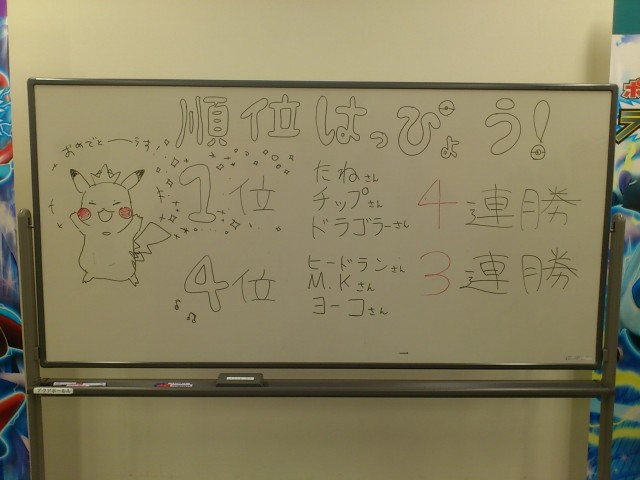 順位はっぴょう!
おめでとーうす!
1位
たねさん
チップさん
ドラゴラーさん
4連勝
4位
ヒードランさん
M.Kさん
ヨーコさん
3連勝